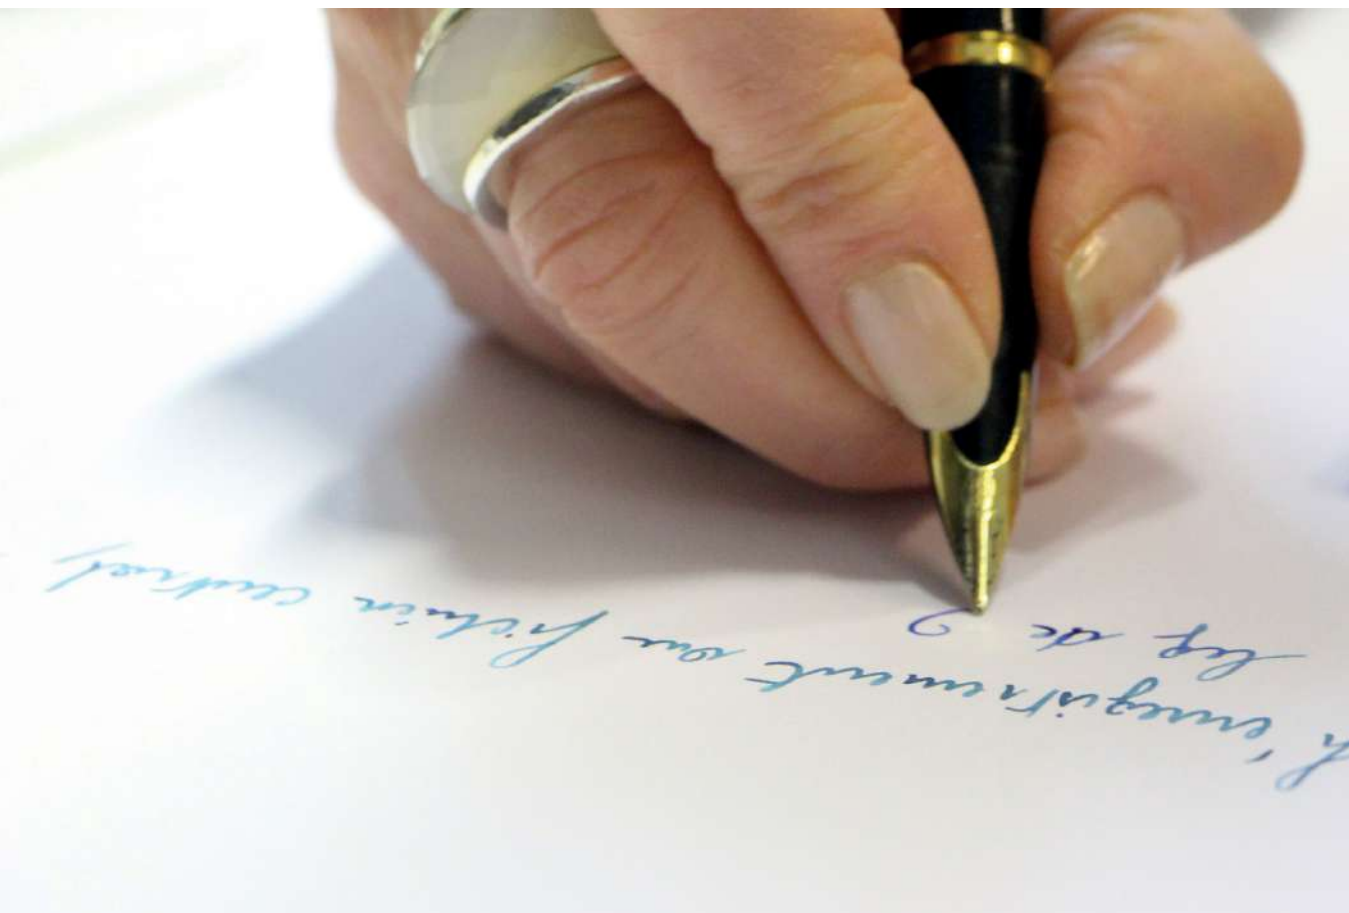 l'enregistrement sur fichier central,
de